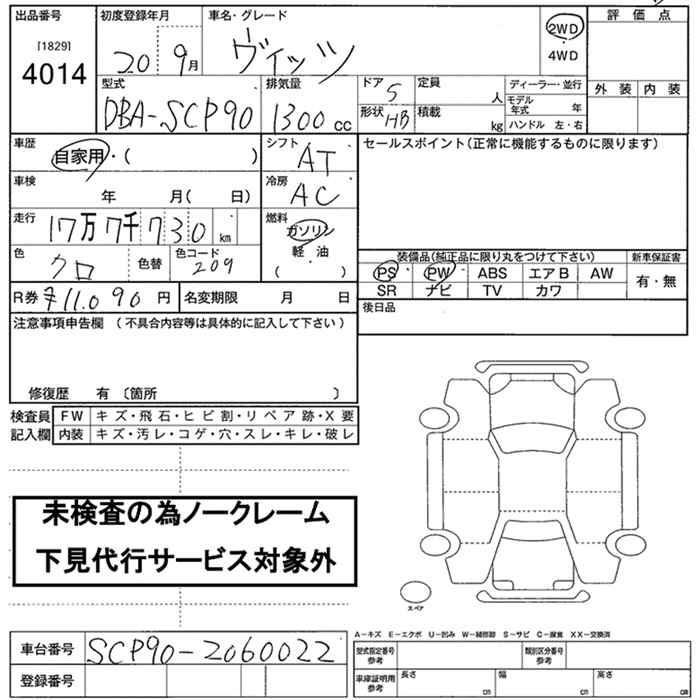 出品番号
[1829]
4014
初度登録年月
20 9月
車名・グレード
ヴィッツ
2WD
・
4WD
評価点
外装 内装
型式
DBA-SCP90
排気量
1300 cc
ドア 5
形状 HB
定員
人
積載
kg
ディーラー・並行
モデル年式 年
ハンドル 左・右
車歴
自家用・( )
車検
年 月( 日)
走行
17万7千730 km
色
クロ
色替
色コード
209
シフト
AT
冷房
AC
燃料
ガソリン
・
軽油
( )
セールスポイント(正常に機能するものに限ります)
装備品(純正品に限り丸をつけて下さい)
新車保証書
PS PW ABS エアB AW
SR ナビ TV カワ
有・無
R券 ¥11.090 円
名変期限 月 日
後日品
注意事項申告欄 (不具合内容等は具体的に記入して下さい)
修復歴 有 〔箇所 〕
検査員
記入欄
FW キズ・飛石・ヒビ割・リペア跡・X要
内装 キズ・汚レ・コゲ・穴・スレ・キレ・破レ
未検査の為ノークレーム
下見代行サービス対象外
スペア
A-キズ E-エクボ U-凹み W-補修跡 S-サビ C-腐食 XX-交換済
車台番号
SCP90-2060022
登録番号
型式指定番号
参考
類別区分番号
参考
車庫証明用
参考
長さ cm
幅 cm
高さ cm